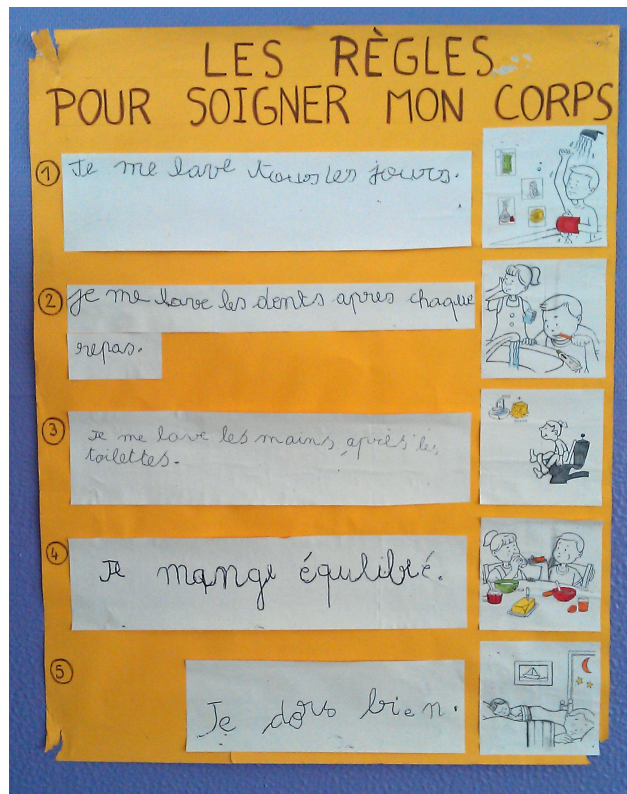 LES RÈGLES
POUR SOIGNER MON CORPS
1 Je me lave tous les jours.
2 je me lave les dents apres chaque
repas.
3 Je me lave les mains, après les
toilettes.
4 Je mange équlibré.
5 Je dors bien.